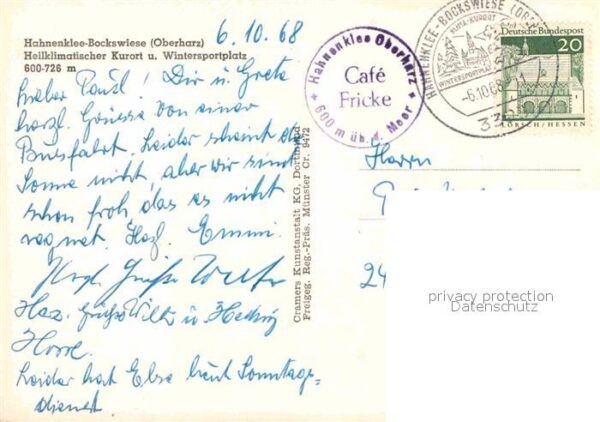 Hahnenklee-Bockswiese (Oberharz)
Heilklimatischer Kurort u. Wintersportplatz
600-726 m
6.10.68
Lieber Paul! Dir u. Greta
herzl. Grüsse von einer
Busfahrt. Leider scheint die
Sonne nicht, aber wir sind
schon froh, das es nicht
regnet. Herzl. Emmi.
Herzl. Grüße
Herz. Grüße Willi u. Hedwig
Leider hat Else heut Sonntags-
dienst
Cramers Kunstanstalt KG, Dortmund
Freigeg. Reg.-Präs. Münster Cr. 9472
* Hahnenklee Oberharz *
Café
Fricke
600 m üb. d. Meer
HAHNENKLEE-BOCKSWIESE
KURORT
WINTERSPORTPLATZ
-6.10.68
Deutsche Bundespost
20
LORSCH/HESSEN
Herrn
24
privacy protection
Datenschutz